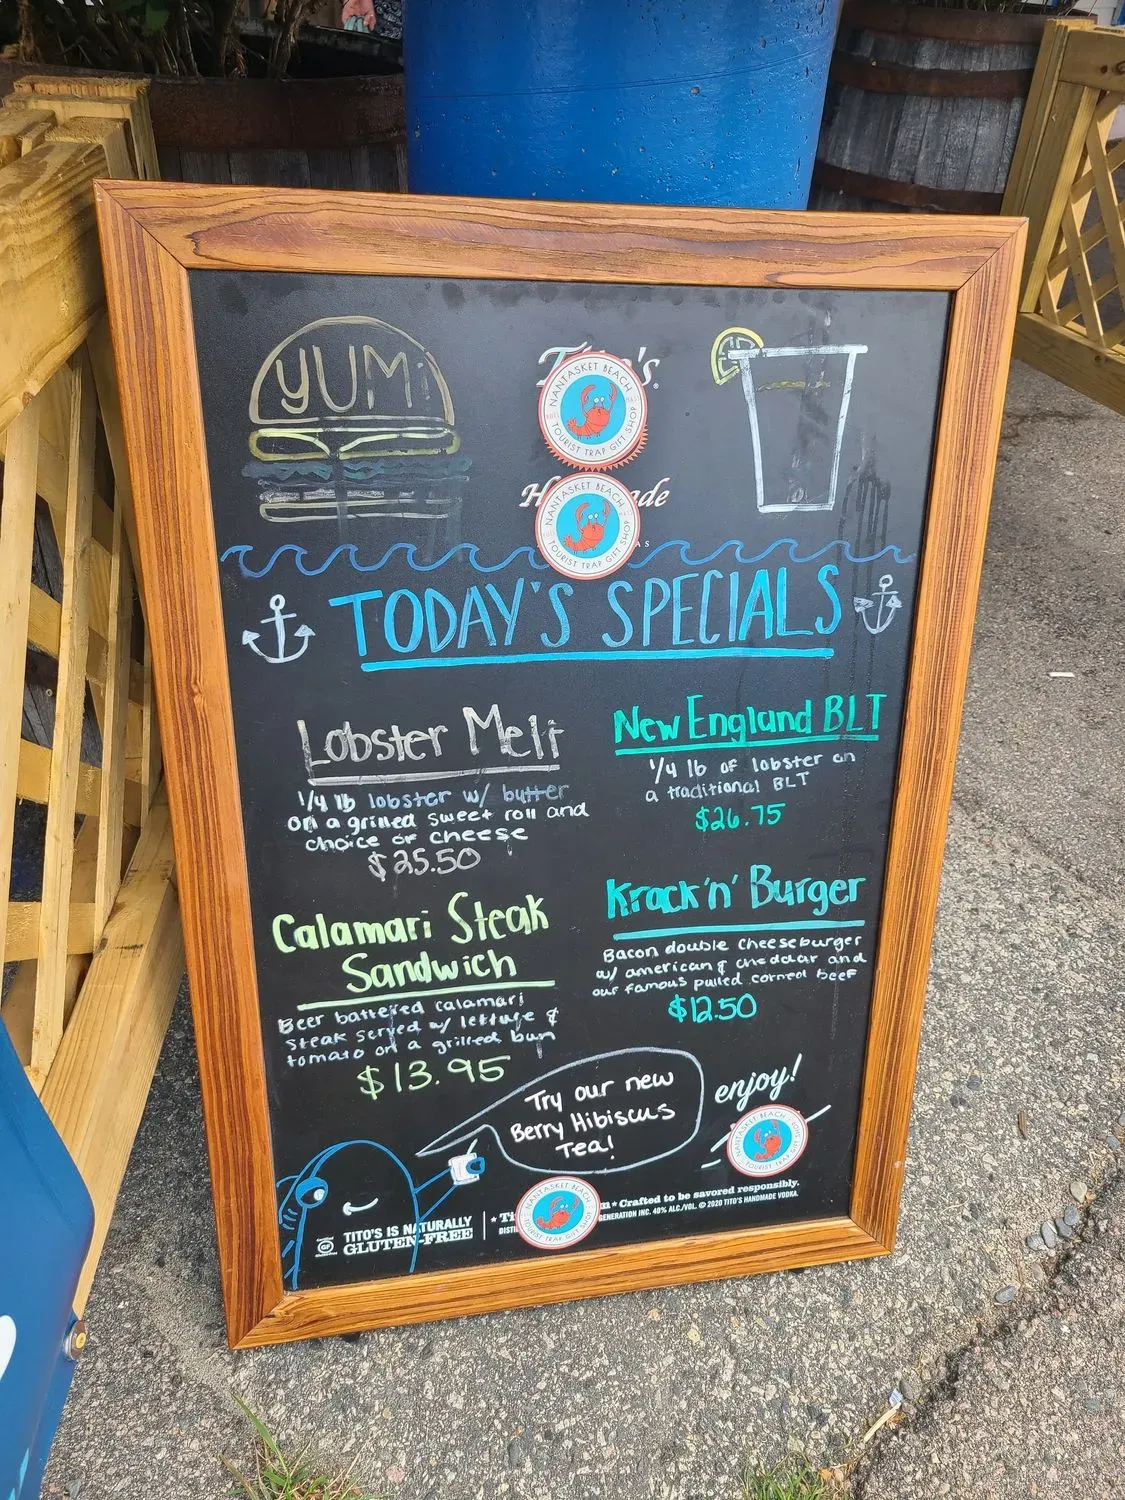 YUM!
Tito's
NANTASKET BEACH
TOURIST TRAP GIFT SHOP
NANTASKET BEACH
TOURIST TRAP GIFT SHOP
TODAY'S SPECIALS
Lobster Melt
1/4 lb lobster w/ butter
on a grilled sweet roll and
choice of cheese
$25.50
New England BLT
1/4 lb of lobster on
a traditional BLT
$26.75
Calamari Steak
Sandwich
Beer battered calamari
steak served w/ lettuce &
tomato on a grilled bun
$13.95
Krack'n' Burger
Bacon double cheeseburger
w/ american & cheddar and
our famous pulled corned beef
$12.50
Try our new
Berry Hibiscus
Tea!
enjoy!
NANTASKET BEACH
TOURIST TRAP GIFT SHOP
NANTASKET BEACH
TOURIST TRAP GIFT SHOP
GF
TITO'S IS NATURALLY
GLUTEN-FREE
* Crafted to be savored responsibly.
GENERATION INC. 40% ALC./VOL. © 2020 TITO'S HANDMADE VODKA.